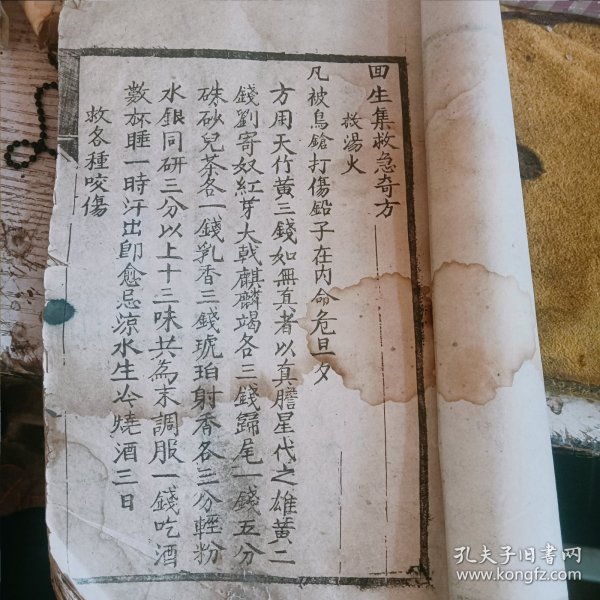 回生集救急奇方
救湯火
凡被鳥鎗打傷鉛子在内命危旦夕
方用天竹黄三錢如無真者以真膽星代之雄黄二
錢劉寄奴紅芽大戟麒麟竭各三錢歸尾一錢五分
硃砂兒茶各一錢乳香三錢琥珀射香各三分輕粉
水銀同研三分以上十三味共為末調服一錢吃酒
數杯睡一時汗出卽愈忌涼水生冷燒酒三日
救各種咬傷
孔夫子旧书网
www.kongfz.com